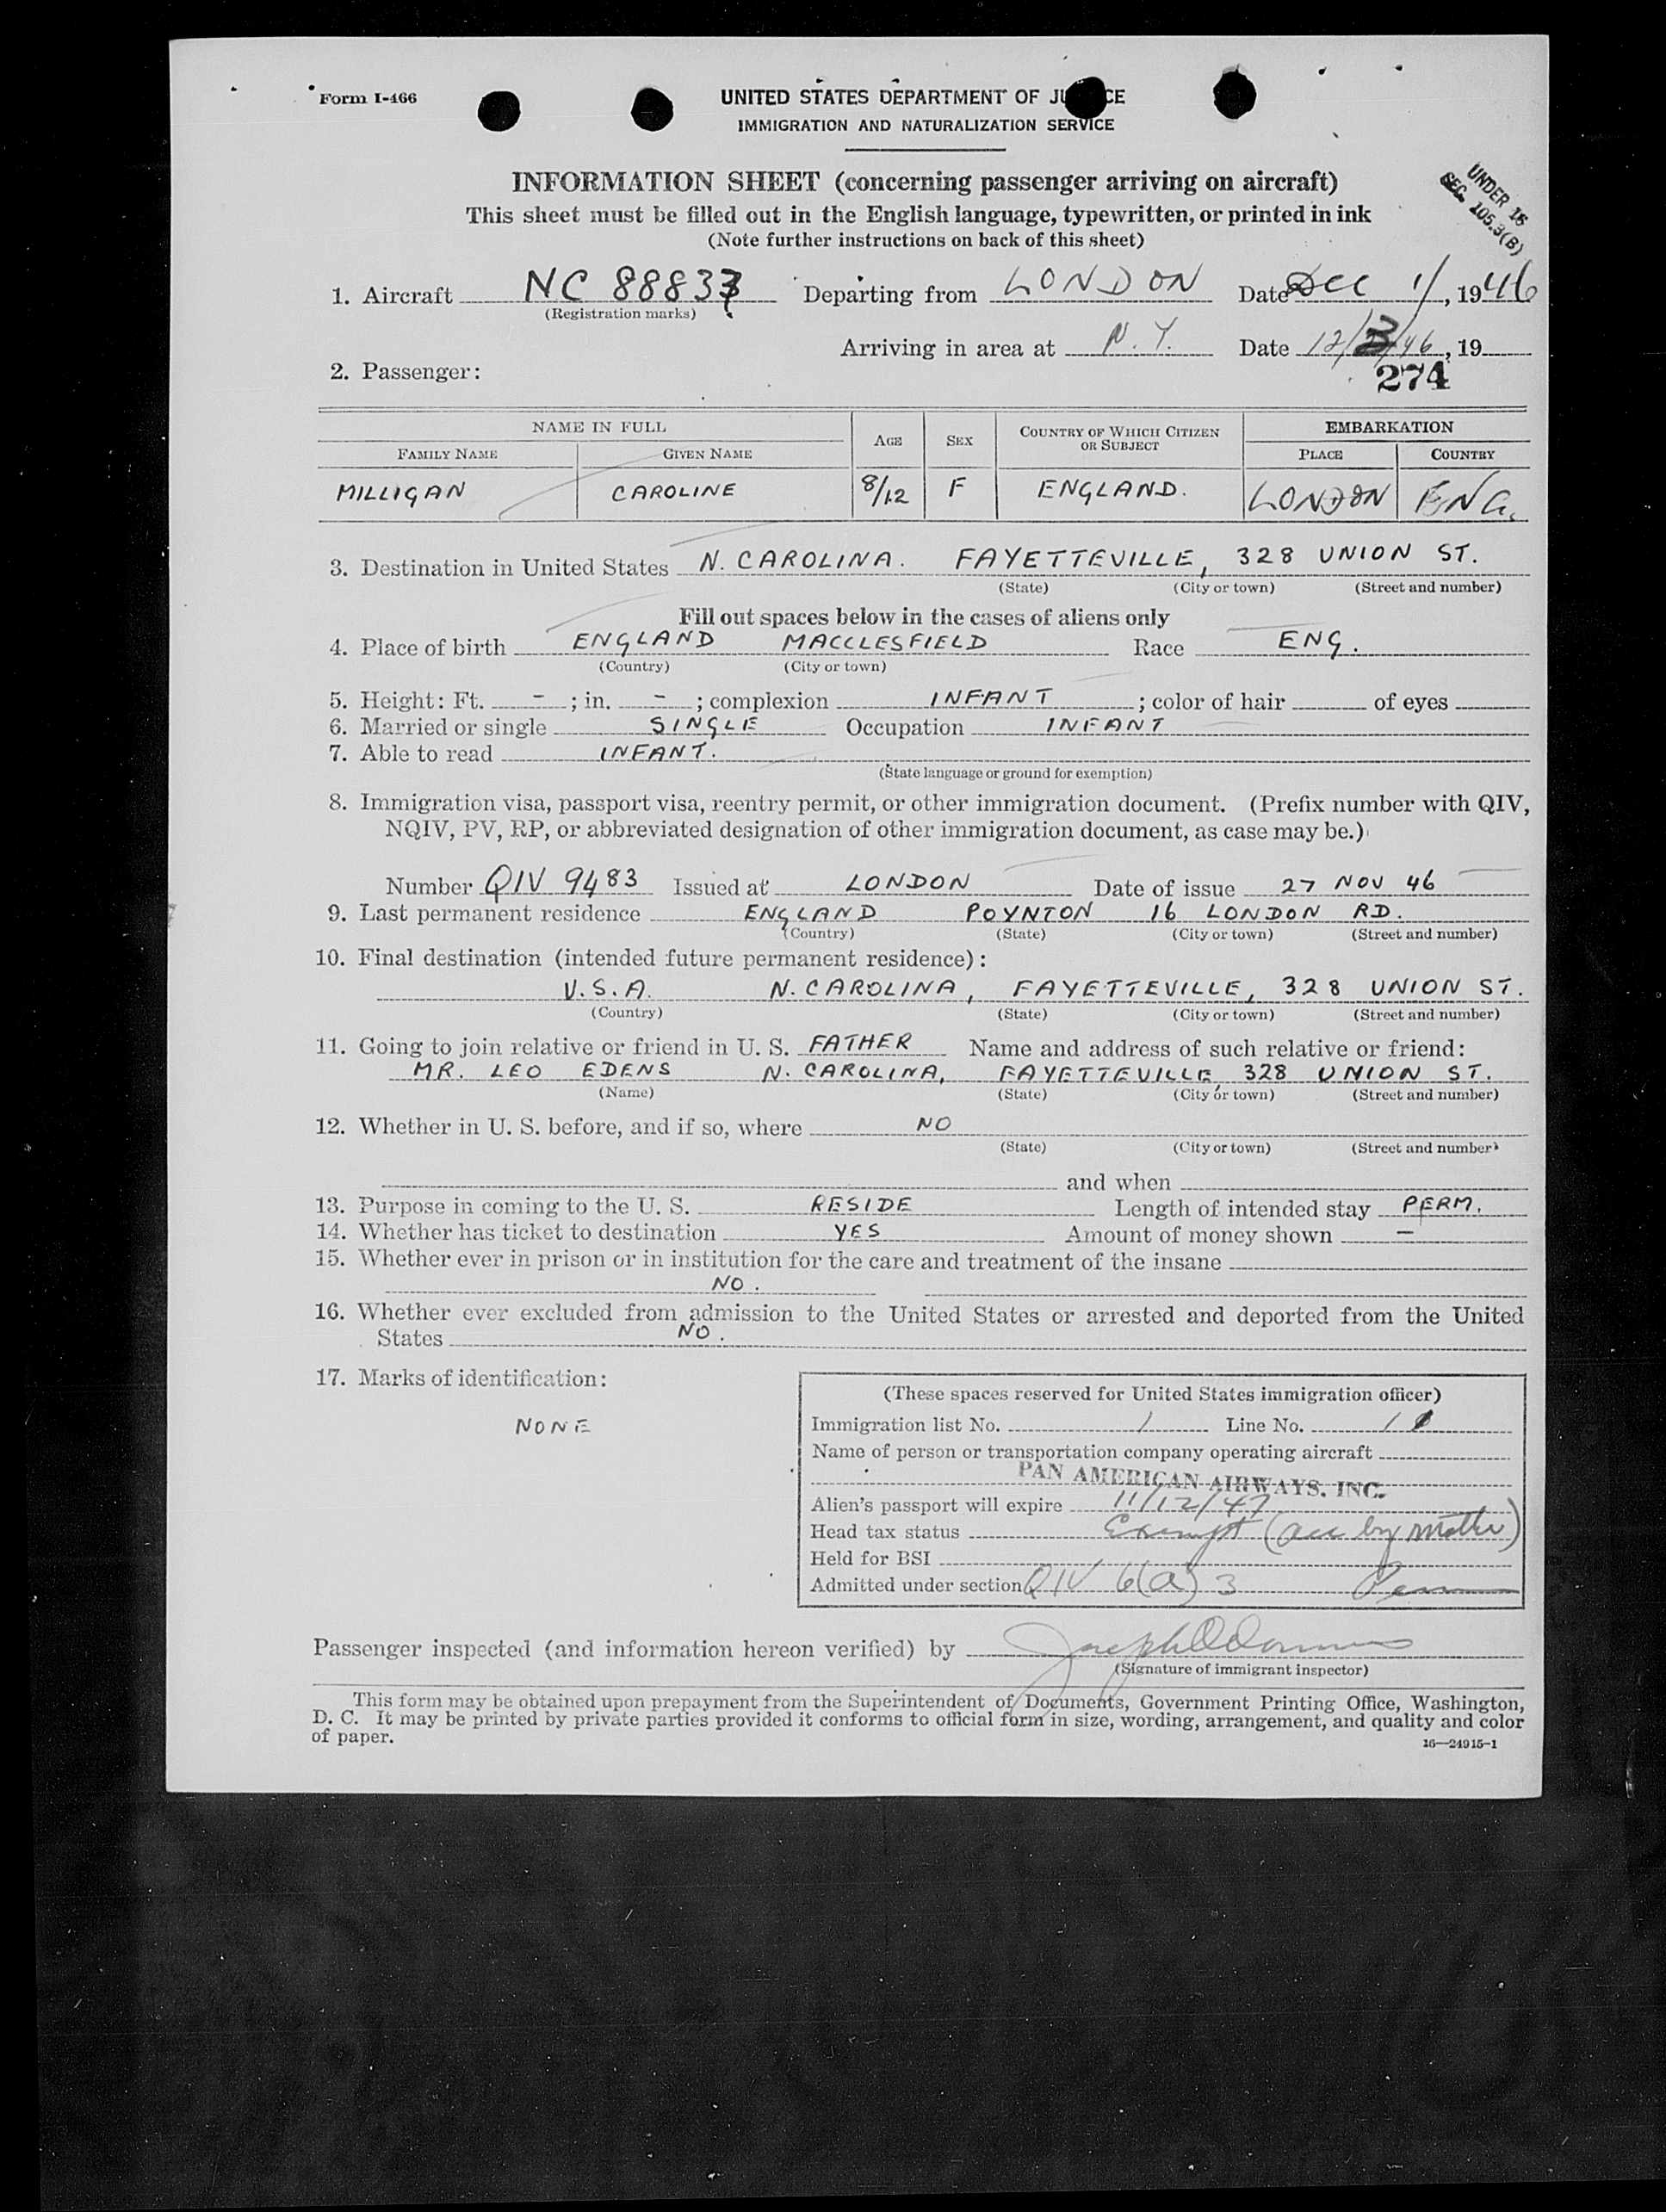 Form I-466
UNITED STATES DEPARTMENT OF JUSTICE
IMMIGRATION AND NATURALIZATION SERVICE
INFORMATION SHEET (concerning passenger arriving on aircraft)
This sheet must be filled out in the English language, typewritten, or printed in ink
(Note further instructions on back of this sheet)
UNDER 16
SEC. 105.3(B)
1. Aircraft NC 88833 Departing from LONDON Date Dec 1, 1946
(Registration marks)
Arriving in area at N.Y. Date 12/3/46, 19
2. Passenger:
274
NAME IN FULL AGE SEX COUNTRY OF WHICH CITIZEN OR SUBJECT EMBARKATION
FAMILY NAME GIVEN NAME PLACE COUNTRY
MILLIGAN CAROLINE 8/12 F ENGLAND. LONDON ENG.
3. Destination in United States N. CAROLINA. FAYETTEVILLE, 328 UNION ST.
(State) (City or town) (Street and number)
Fill out spaces below in the cases of aliens only
4. Place of birth ENGLAND MACCLESFIELD Race ENG.
(Country) (City or town)
5. Height: Ft. - ; in. - ; complexion INFANT ; color of hair of eyes
6. Married or single SINGLE Occupation INFANT
7. Able to read INFANT.
(State language or ground for exemption)
8. Immigration visa, passport visa, reentry permit, or other immigration document. (Prefix number with QIV,
NQIV, PV, RP, or abbreviated designation of other immigration document, as case may be.)
Number QIV 9483 Issued at LONDON Date of issue 27 NOV 46
9. Last permanent residence ENGLAND POYNTON 16 LONDON RD.
(Country) (State) (City or town) (Street and number)
10. Final destination (intended future permanent residence):
U.S.A. N. CAROLINA, FAYETTEVILLE, 328 UNION ST.
(Country) (State) (City or town) (Street and number)
11. Going to join relative or friend in U. S. FATHER Name and address of such relative or friend:
MR. LEO EDENS N. CAROLINA, FAYETTEVILLE, 328 UNION ST.
(Name) (State) (City or town) (Street and number)
12. Whether in U. S. before, and if so, where NO
(State) (City or town) (Street and number)
and when
13. Purpose in coming to the U. S. RESIDE Length of intended stay PERM.
14. Whether has ticket to destination YES Amount of money shown —
15. Whether ever in prison or in institution for the care and treatment of the insane
NO.
16. Whether ever excluded from admission to the United States or arrested and deported from the United
States NO.
17. Marks of identification:
NONE
(These spaces reserved for United States immigration officer)
Immigration list No. 1 Line No. 1
Name of person or transportation company operating aircraft
PAN AMERICAN AIRWAYS, INC.
Alien's passport will expire 11/12/47
Head tax status Exempt (acc by mother)
Held for BSI
Admitted under section QIV 6(a) 3 Perm
Passenger inspected (and information hereon verified) by
(Signature of immigrant inspector)
This form may be obtained upon prepayment from the Superintendent of Documents, Government Printing Office, Washington,
D. C. It may be printed by private parties provided it conforms to official form in size, wording, arrangement, and quality and color
of paper.
16—24915-1